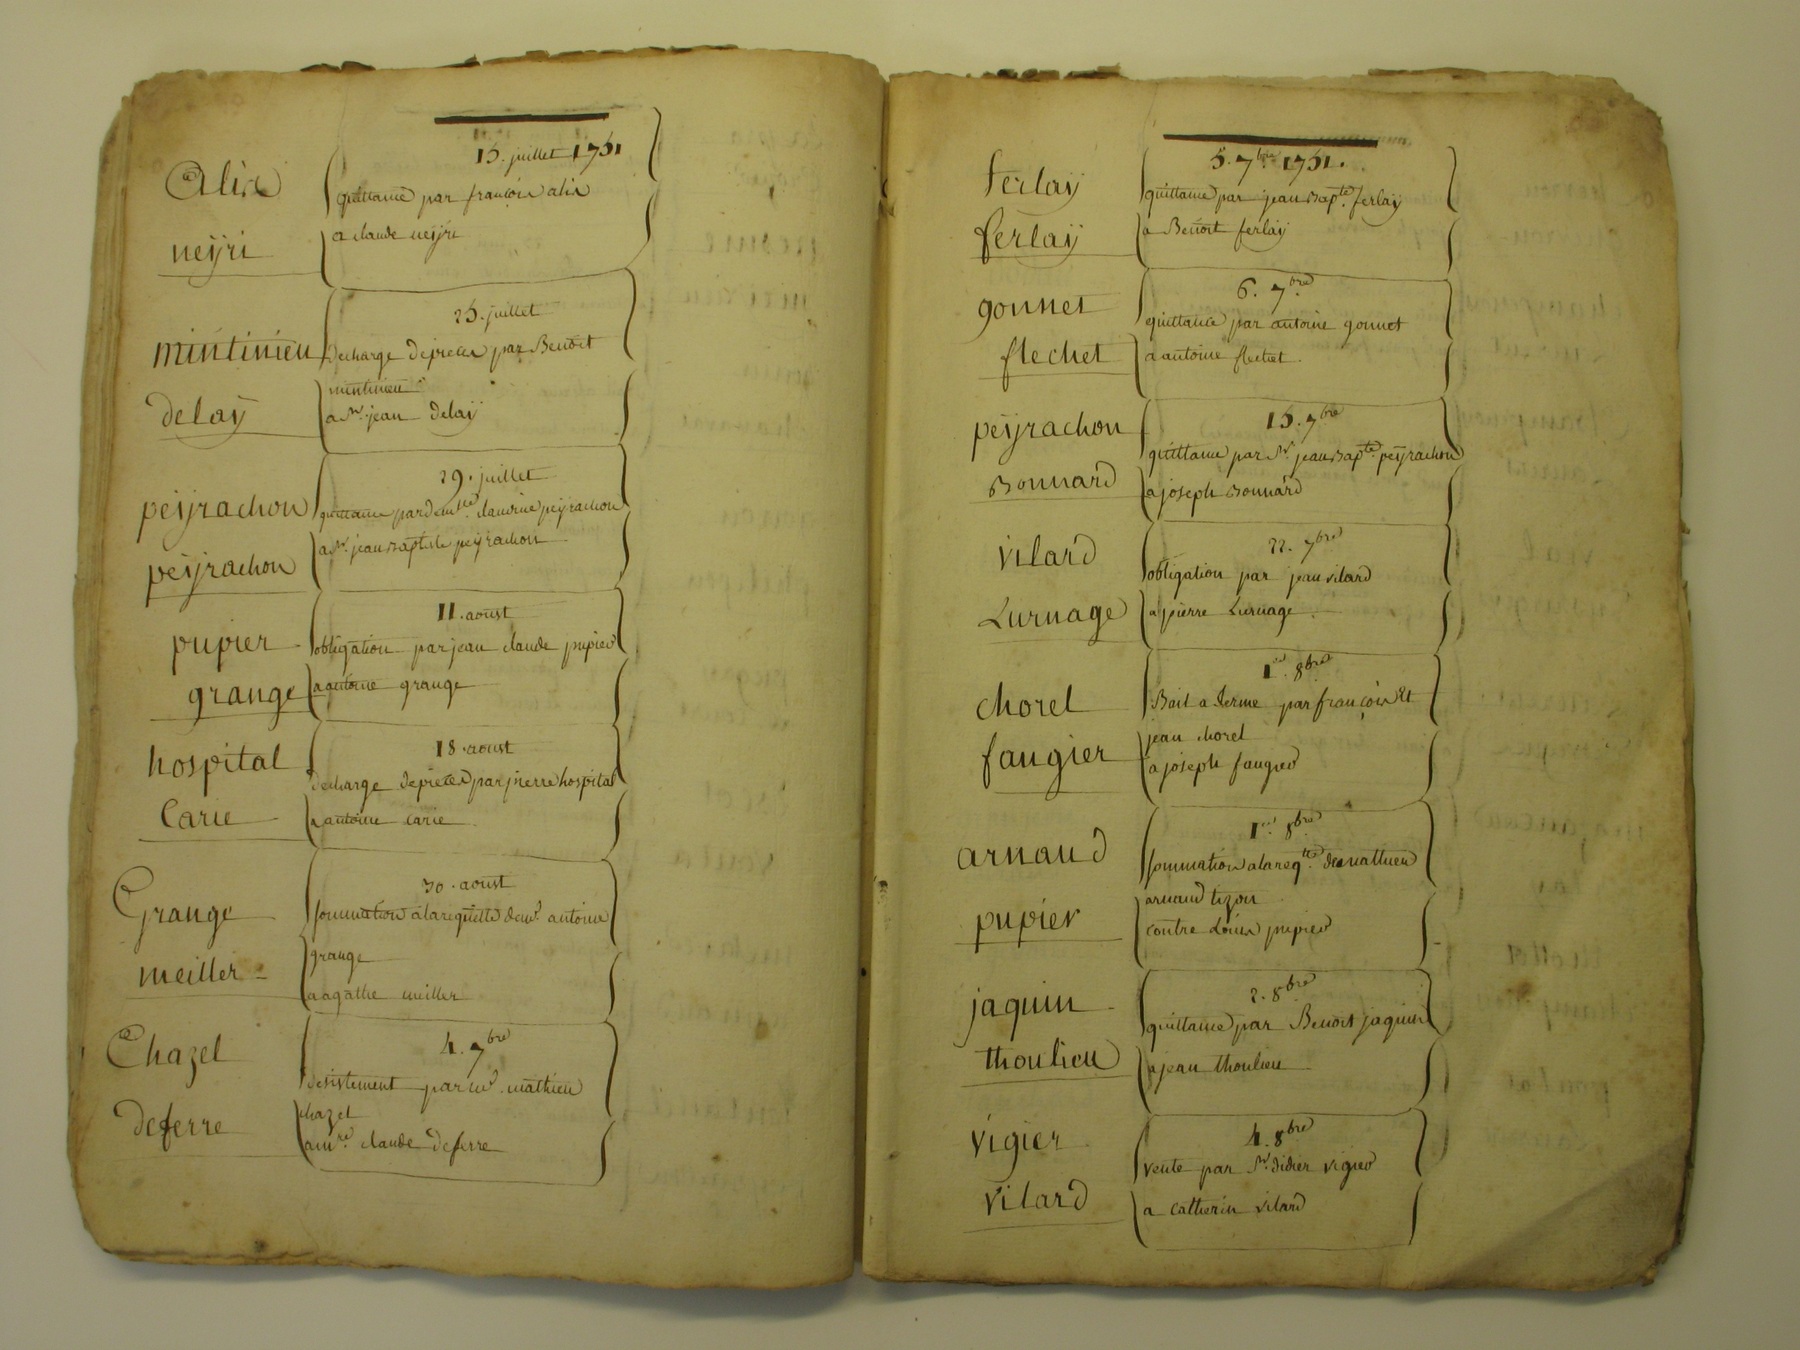 15. juillet 1751
alix
quittance par françois alix
a claude neÿri
neÿri
25. juillet
mintinieu
decharge depieces par Benoit
mintinieu
delaÿ
a Sr. jean delaÿ
29. juillet
peÿrachon
quittance par demlle. claudine peÿrachon
a Sr. jean Baptiste peÿrachon
peÿrachon
11. aoust
pupier
obligation par jean claude pupier
grange
a antoine grange
18. aoust
hospital
decharge depieces par pierre hospital
Carie
a antoine carie
30. aoust
Grange
sommation a la requette de antoine
grange
meiller
a agathe meiller
4. 7bre
Chazel
desistement par mathieu
chazel
deferre
a claude deferre
5. 7bre 1751.
ferlaÿ
quittance par jean Bapte. ferlaÿ
ferlaÿ
a Benoit ferlaÿ
6. 7bre
gonnet
quittance par antoine gonnet
flechet
a antoine flechet
15. 7bre
peÿrachon
quittance par Sr. jean Bapte. peÿrachon
Bonnard
a joseph Bonnard
22. 7bre
vilard
obligation par jean vilard
Lurnage
a pierre Lurnage
1er. 8bre
chorel
Bail a ferme par françois Et
jean chorel
faugier
a joseph faugier
1er. 8bre
arnaud
sommation a la reqte. de mathieu
arnaud tizon
pupier
contre Loüis pupier
2. 8bre
jaquin
quittance par Benoit jaquin
thoulieu
a jean thoulieu
4. 8bre
vigier
vente par Sr. didier vigier
vilard
a catherin vilard